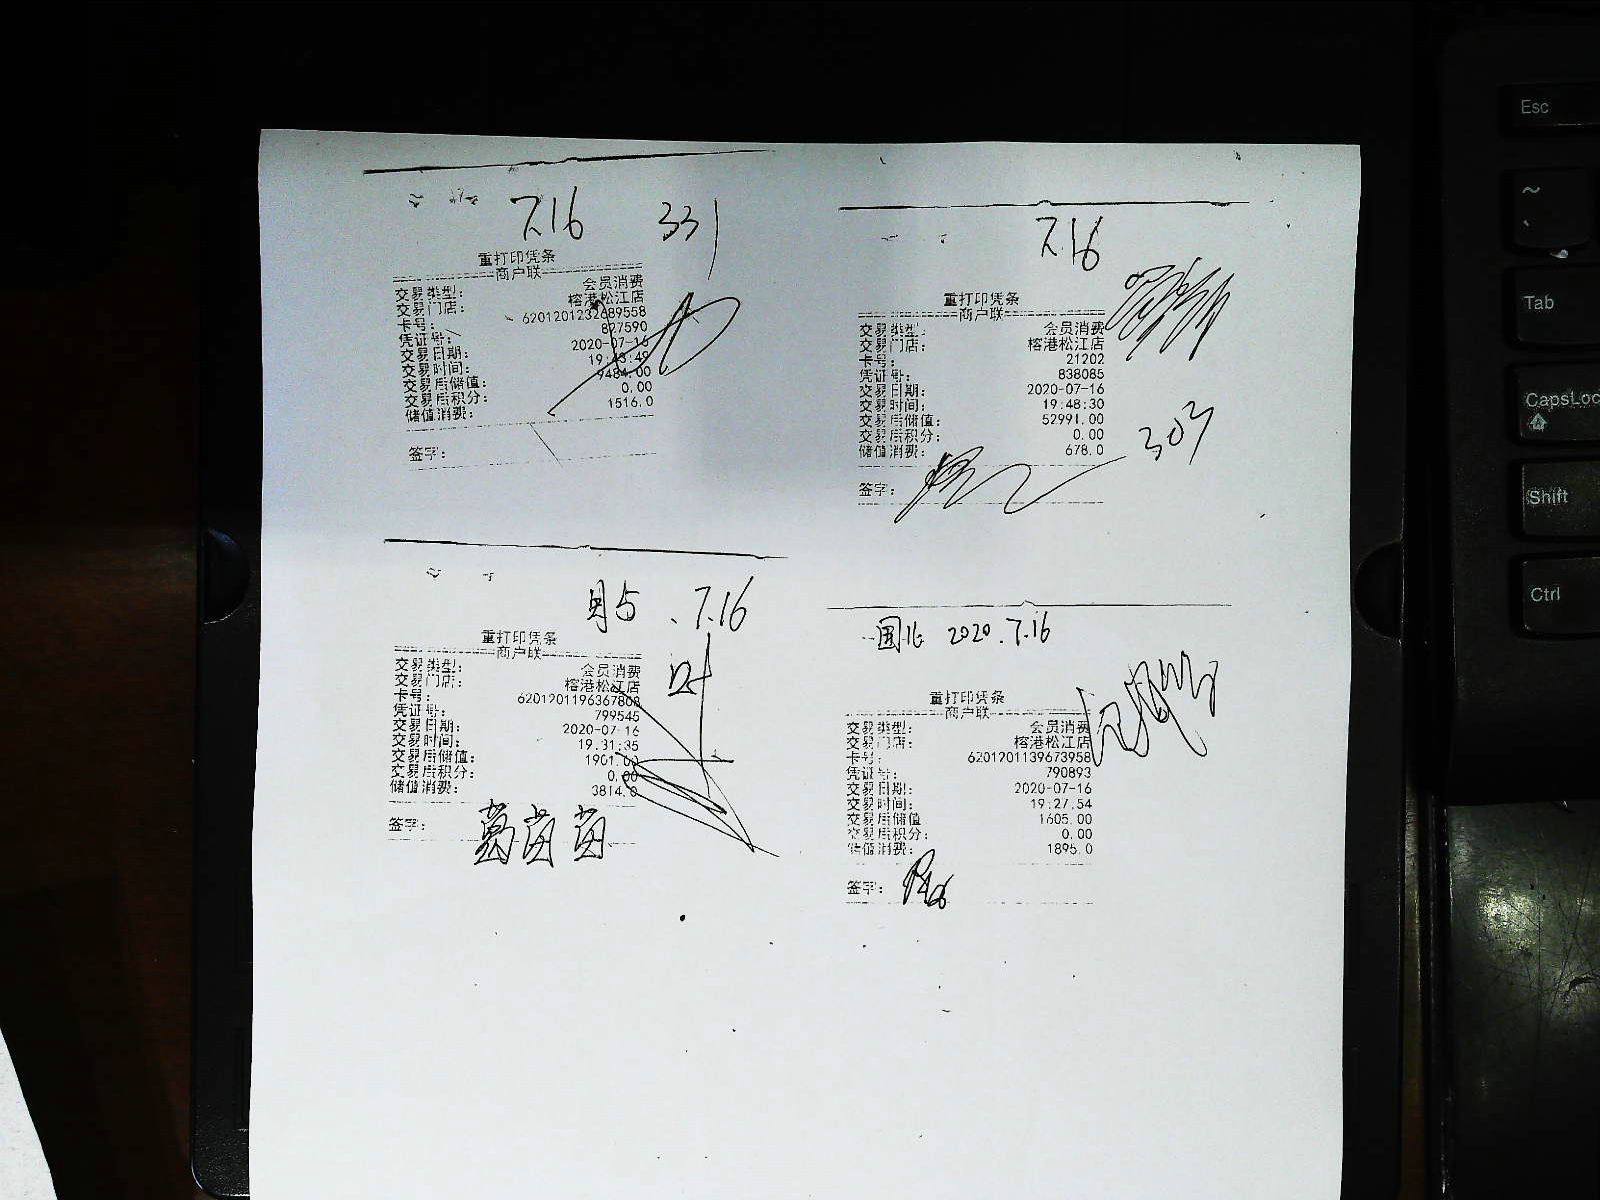 7.16 331
重打印凭条
商户联
交易类型: 会员消费
交易门店: 榕港松江店
卡号: 6201201232689558
凭证号: 827590
交易日期: 2020-07-16
交易时间: 19:43:49
交易后储值: 9484.00
交易后积分: 0.00
储值消费: 1516.0
签字:
7.16
重打印凭条
商户联
交易类型: 会员消费
交易门店: 榕港松江店
卡号: 21202
凭证号: 838085
交易日期: 2020-07-16
交易时间: 19:48:30
交易后储值: 52991.00
交易后积分: 0.00
储值消费: 678.0
303
签字:
7.16
重打印凭条
商户联
交易类型: 会员消费
交易门店: 榕港松江店
卡号: 6201201196367808
凭证号: 799545
交易日期: 2020-07-16
交易时间: 19:31:35
交易后储值: 1901.00
交易后积分: 0.00
储值消费: 3814.0
签字: 葛茵茵
2020.7.16
重打印凭条
商户联
交易类型: 会员消费
交易门店: 榕港松江店
卡号: 6201201139673958
凭证号: 790893
交易日期: 2020-07-16
交易时间: 19:27:54
交易后储值 1605.00
交易后积分: 0.00
储值消费: 1895.0
签字:
Esc
~
`
Tab
CapsLoc
Shift
Ctrl